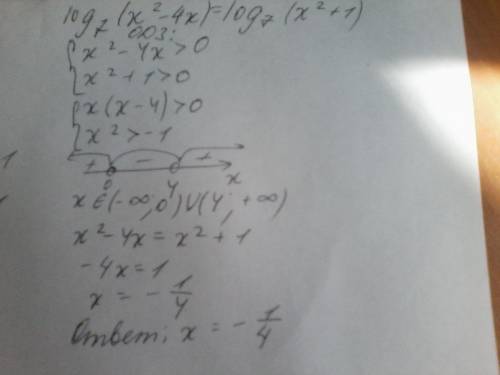 log₇(x²-4x)=log₇(x²+1)
ОДЗ:
{x²-4x>0
{x²+1>0
{x(x-4)>0
{x²>-1
+ - +
0 4 x
x∈(-∞;0)∪(4;+∞)
x²-4x=x²+1
-4x=1
x=-1/4
Ответ: x=-1/4